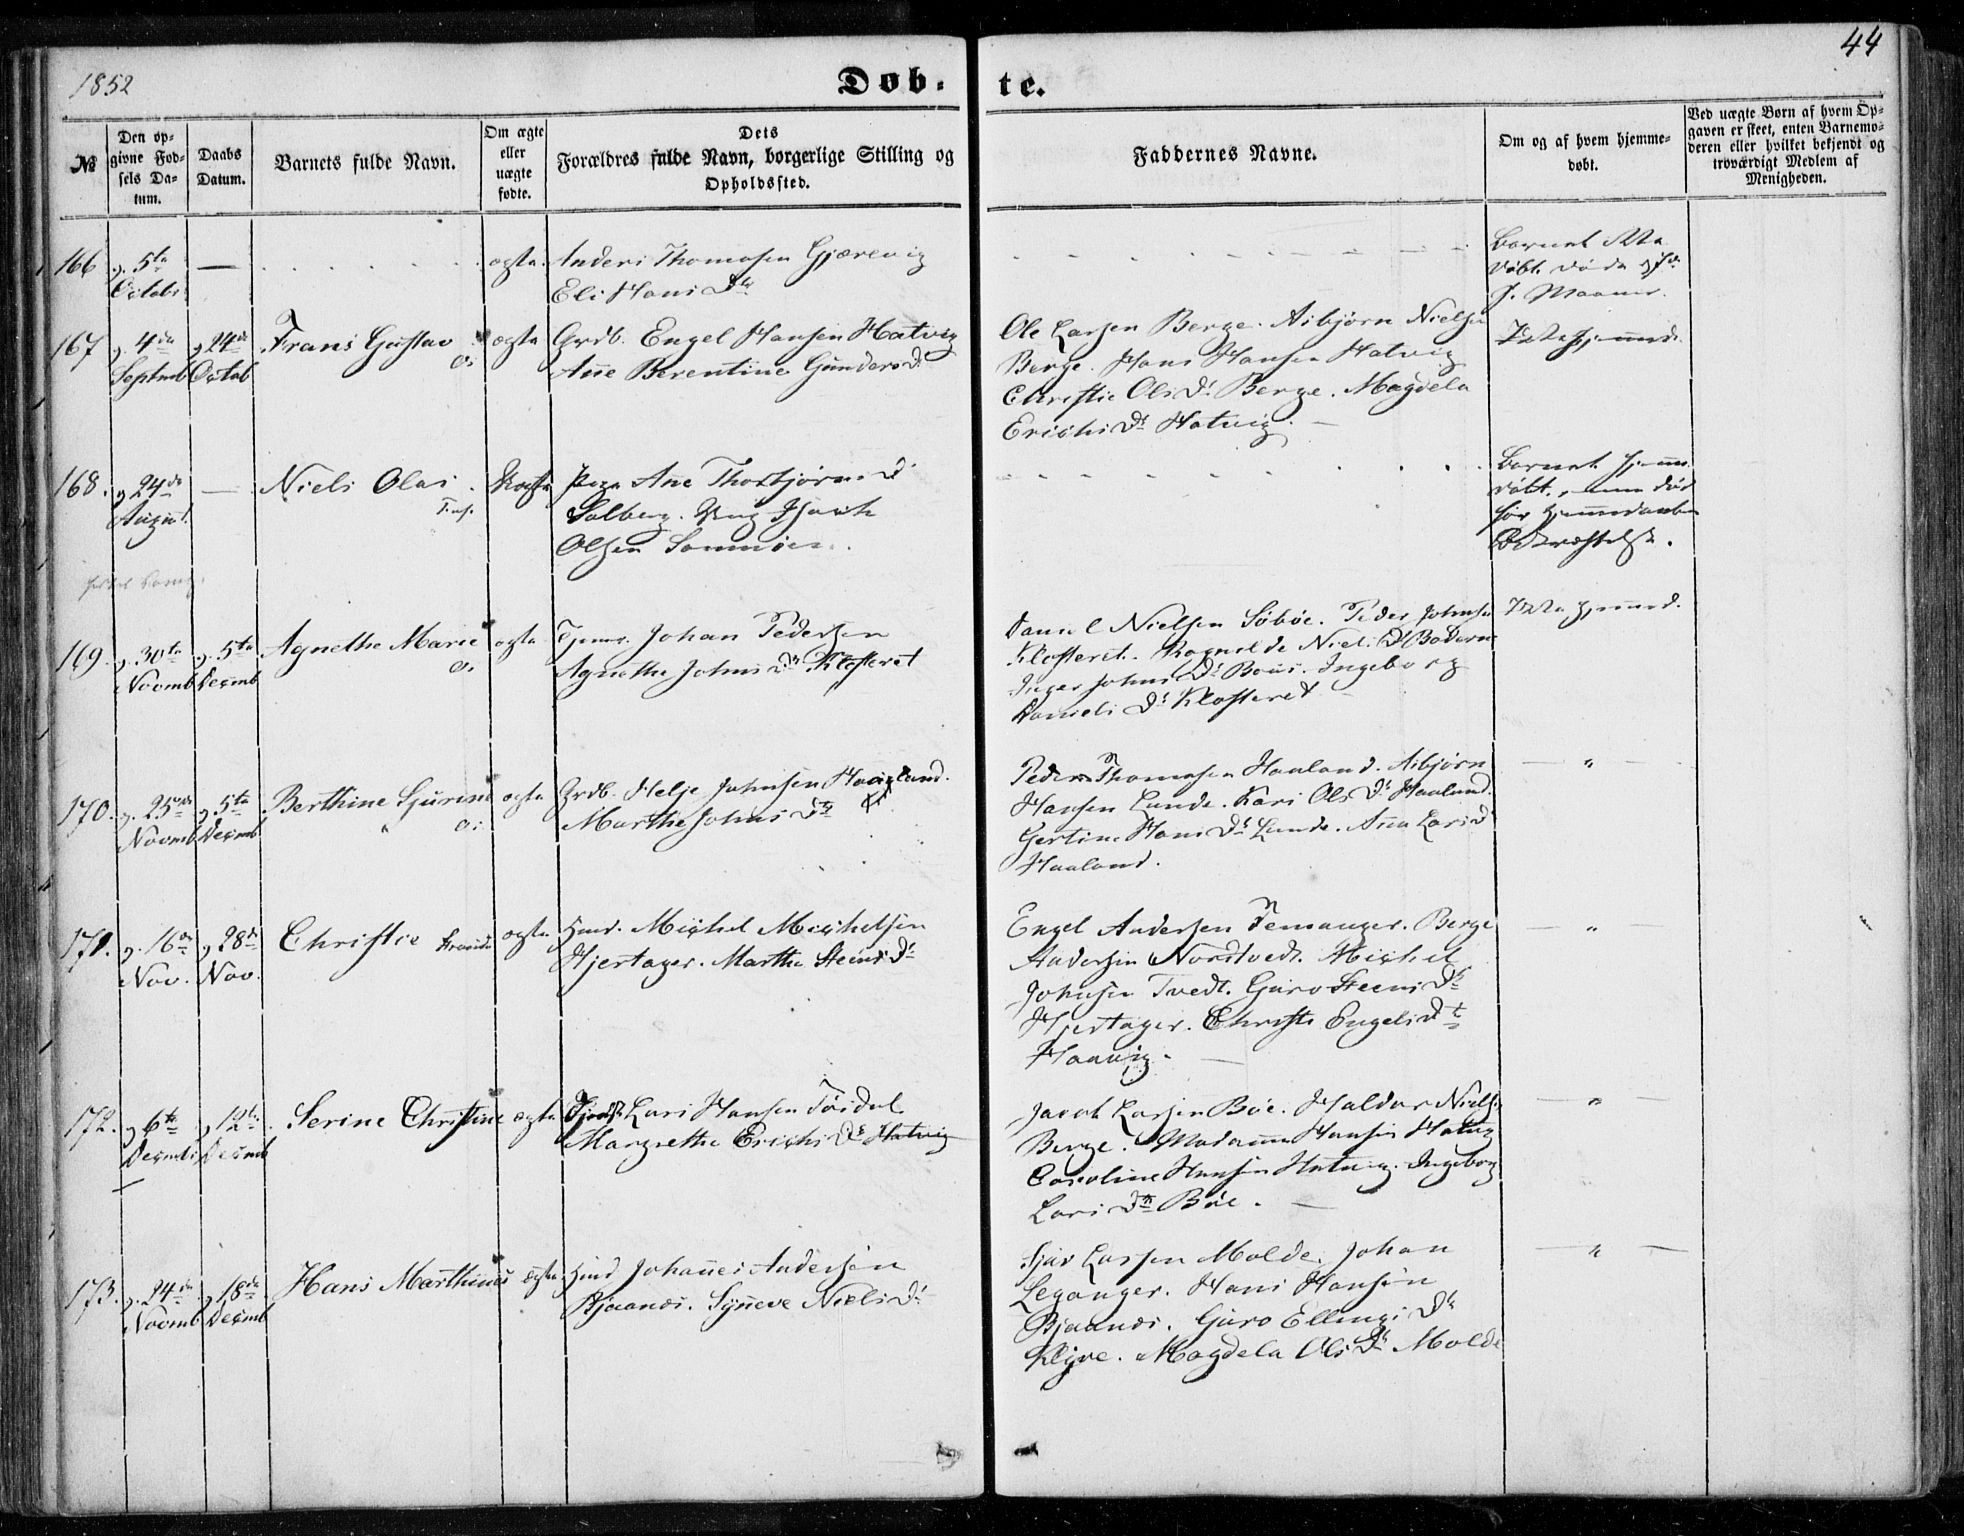 1852
Døb-
te.
44
№
Den op-
givne Fød-
sels Da-
tum.
Daabs
Datum.
Barnets fulde Navn.
Om ægte
eller
uægte
fødte.
Dets
Forældres fulde Navn, borgerlige Stilling og
Opholdssted.
Faddernes Navne.
Om og af hvem hjemme-
døbt.
Ved uægte Børn af hvem Op-
gaven er skeet, enten Barnemo-
deren eller hvilket bekjendt og
troværdigt Medlem af
Menigheden.
166
5te
Octobr
—
ægte
Anders Thomasen Gjærevig
Eli Hans Dtr
Barnet
døbt. døde
167
4de
Septmb
24de
Octob
Frans Gustav
Os
ægte
Grdb. Engel Hansen Hatvig
Ane Berentine Gunders D.
Ole Larsen Berge. Asbjørn Nielsen
Berge. Hans Hansen Hatvig
Christie Ols Dr Berge. Magdela
Erichs Dr Hatvig. —
Ikke hjemmed.
168.
24de
August.
—
Niels Olai
Pige Ane Thorbjørns D
Solberg. Ung Isach
Olsen
Barnet hjemme
døbt, men død
før
Bekræftelse.
169.
30te
Novmb
5te
Decmb
Agnethe Marie
Os
ægte
Johan Pedersen
Agnethe Johns Dr Klosteret
Daniel Nielsen Søbøe. Peder Johnsen
Klosteret. Ragnilde Niels D
Inger Johns Dr Bøes. Ingeborg
Daniels Dr Klosteret
Ikke hjemmed.
170.
25de
Novmb
5te
Decmb
Berthine Sjurine
Os
ægte
Grdb. Helje Johnsen
Marthe Johns Dtr
Peder Thomasen Haaland. Asbjørn
Hansen Lunde. Kari Ols Dr Haaland.
Gertine Hans Dr Lunde. Ana Lars D
Haaland.
— " —
171.
16de
Nov.
28de
Nov.
Christie
Strands
ægte
Huusd. Michel Michelsen
Hjertager. Marthe Steens Dr
Engel Andersen Femanger. Berge
Andersen Nordtvedt. Michel
Johnsen Tvedt. Guro Steens Dr
Hjertager. Christi Engels Dr
Haavig. —
— " —
172.
6te
Decmb
12te
Decmb
Serine Christine
ægte
Lars Hansen
Margrethe Erichs Dr Hatvig
Jacob Larsen Bøe. Haldor Niels
Berge. Madamme Hansen Hatvig
Caroline Hansen Hatvig. Ingeborg
Lars Dtr Bøe. —
— " —
173.
24de
Novmb
18de
Decmb
Hans Marthinus
ægte
Huusd Johanes Andersen
Bjaanes. Syneve Niels Dr
Sjur Larsen Molde. Johan
Leganger. Hans Hansen
Bjaanes. Guro Ellings Dr
Klyve. Magdela Ols Dr Molde
— " —